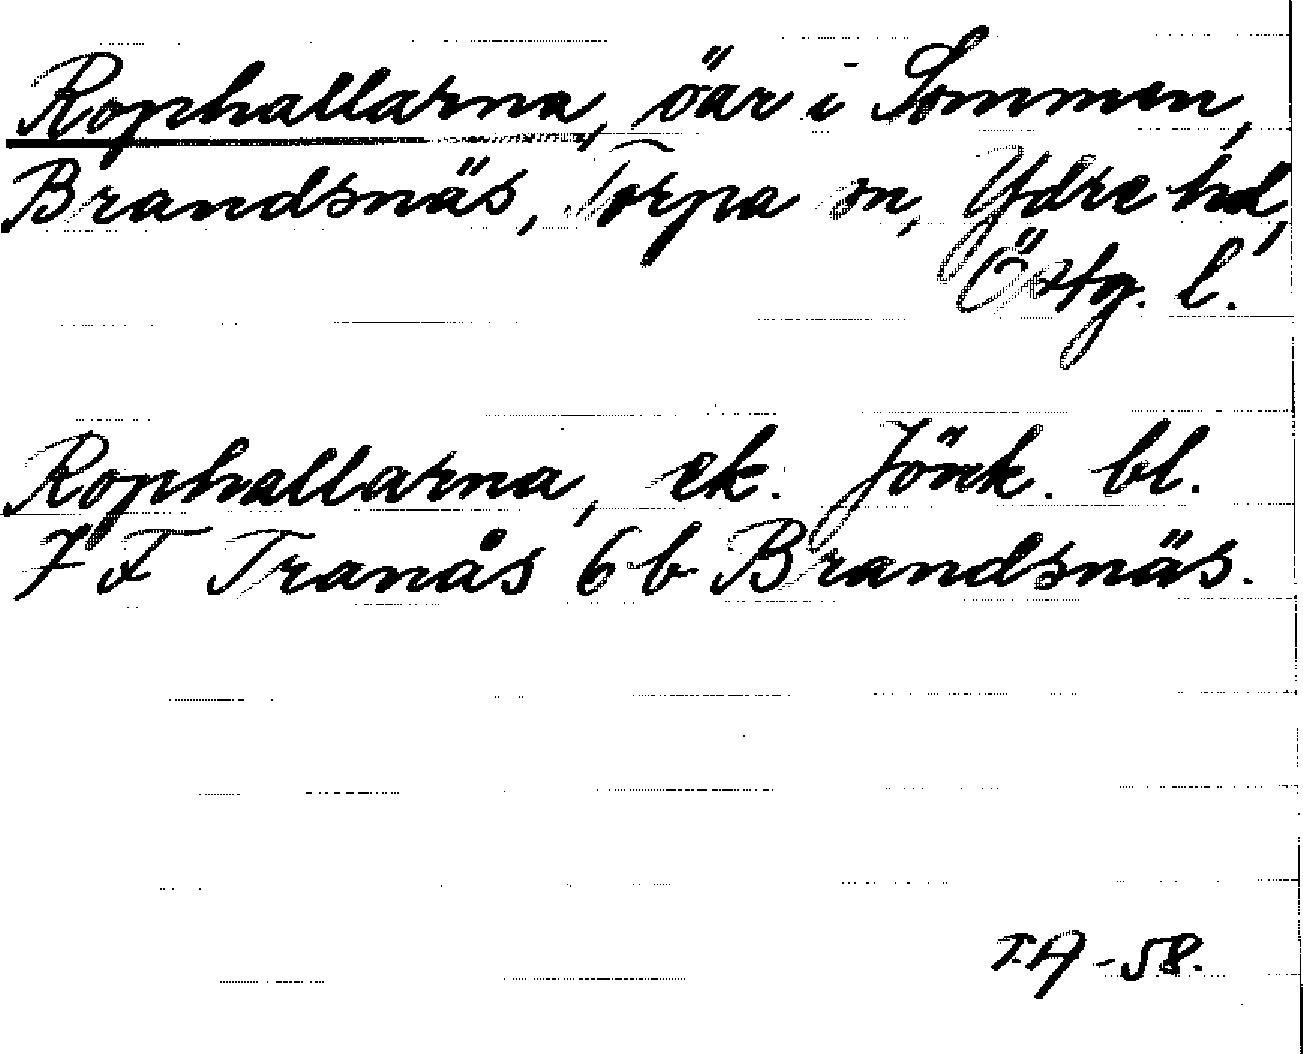 Rophallarna, öar i Sommen,
Brandsnäs, Torpa sn, Ydre hd,
Östg. l.
Rophallarna, ek. Jönk. bl.
7 F Tranås 6 b Brandsnäs.
T.A -58.